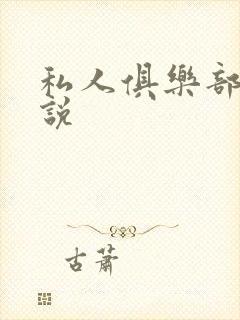 私人俱樂部
說
古蕭